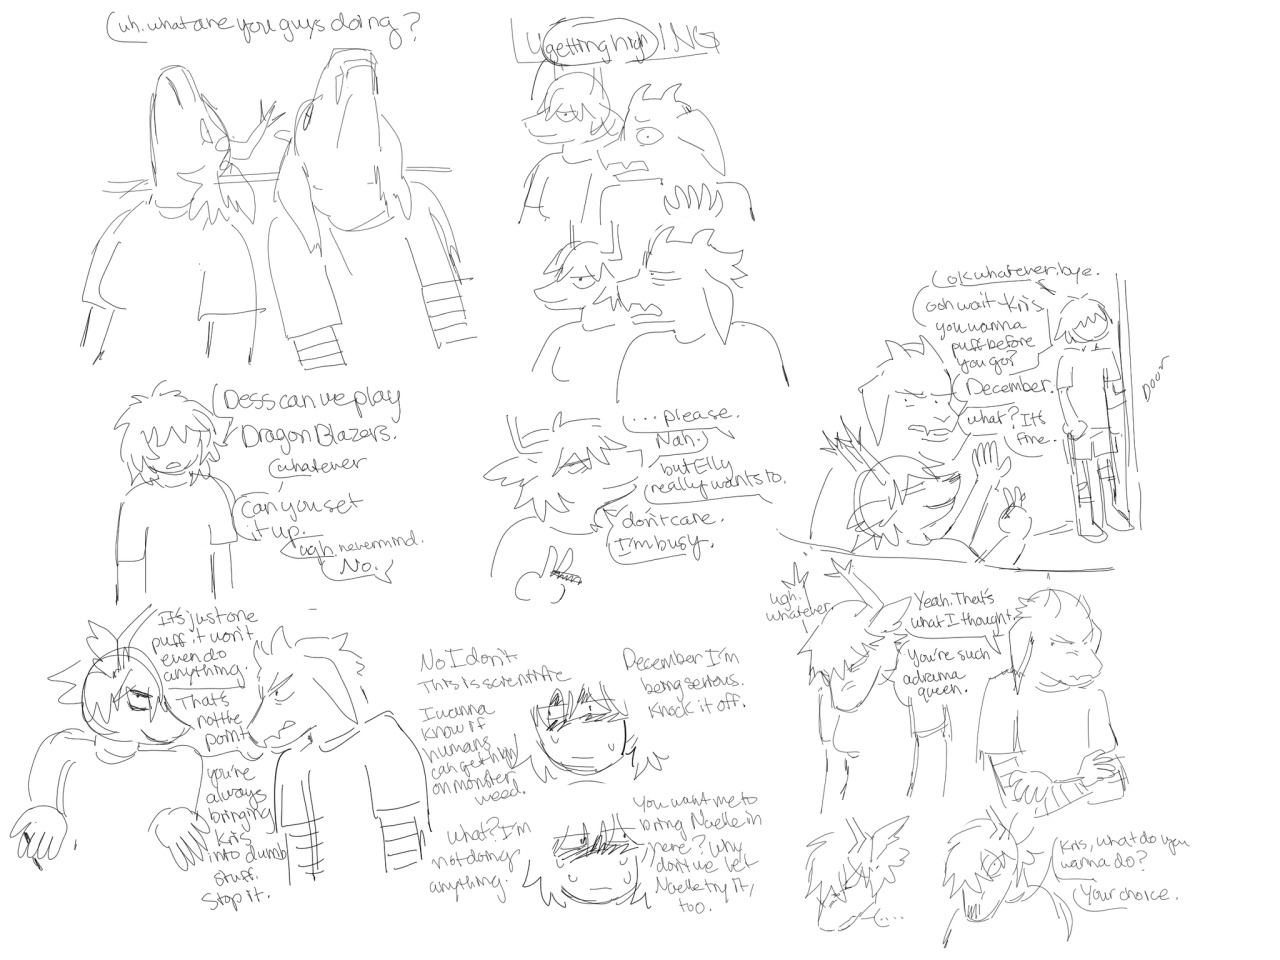 uh. what are you guys doing?
U getting high ING
Dess can we play
Dragon Blazers.
whatever
Can you set
it up.
ugh. nevermind.
No.
...please.
Nah.
but Elly
really wants to.
don't care.
I'm busy.
ok whatever. bye.
ooh wait Kris
you wanna
puff before
you go?
December.
what? It's
fine.
DOOR
It's just one
puff, it won't
even do
anything.
That's
not the
point
you're
always
bringing
Kris
into dumb
stuff.
Stop it.
No I don't
This is scientific
I wanna
know if
humans
can get high
on monster
weed.
December I'm
being serious.
Knock it off.
What? I'm
not doing
anything.
You want me to
bring Noelle in
here? Why
don't we let
Noelle try it,
too.
ugh.
whatever.
Yeah. That's
what I thought.
You're such
a drama
queen.
....
Kris, what do you
wanna do?
Your choice.